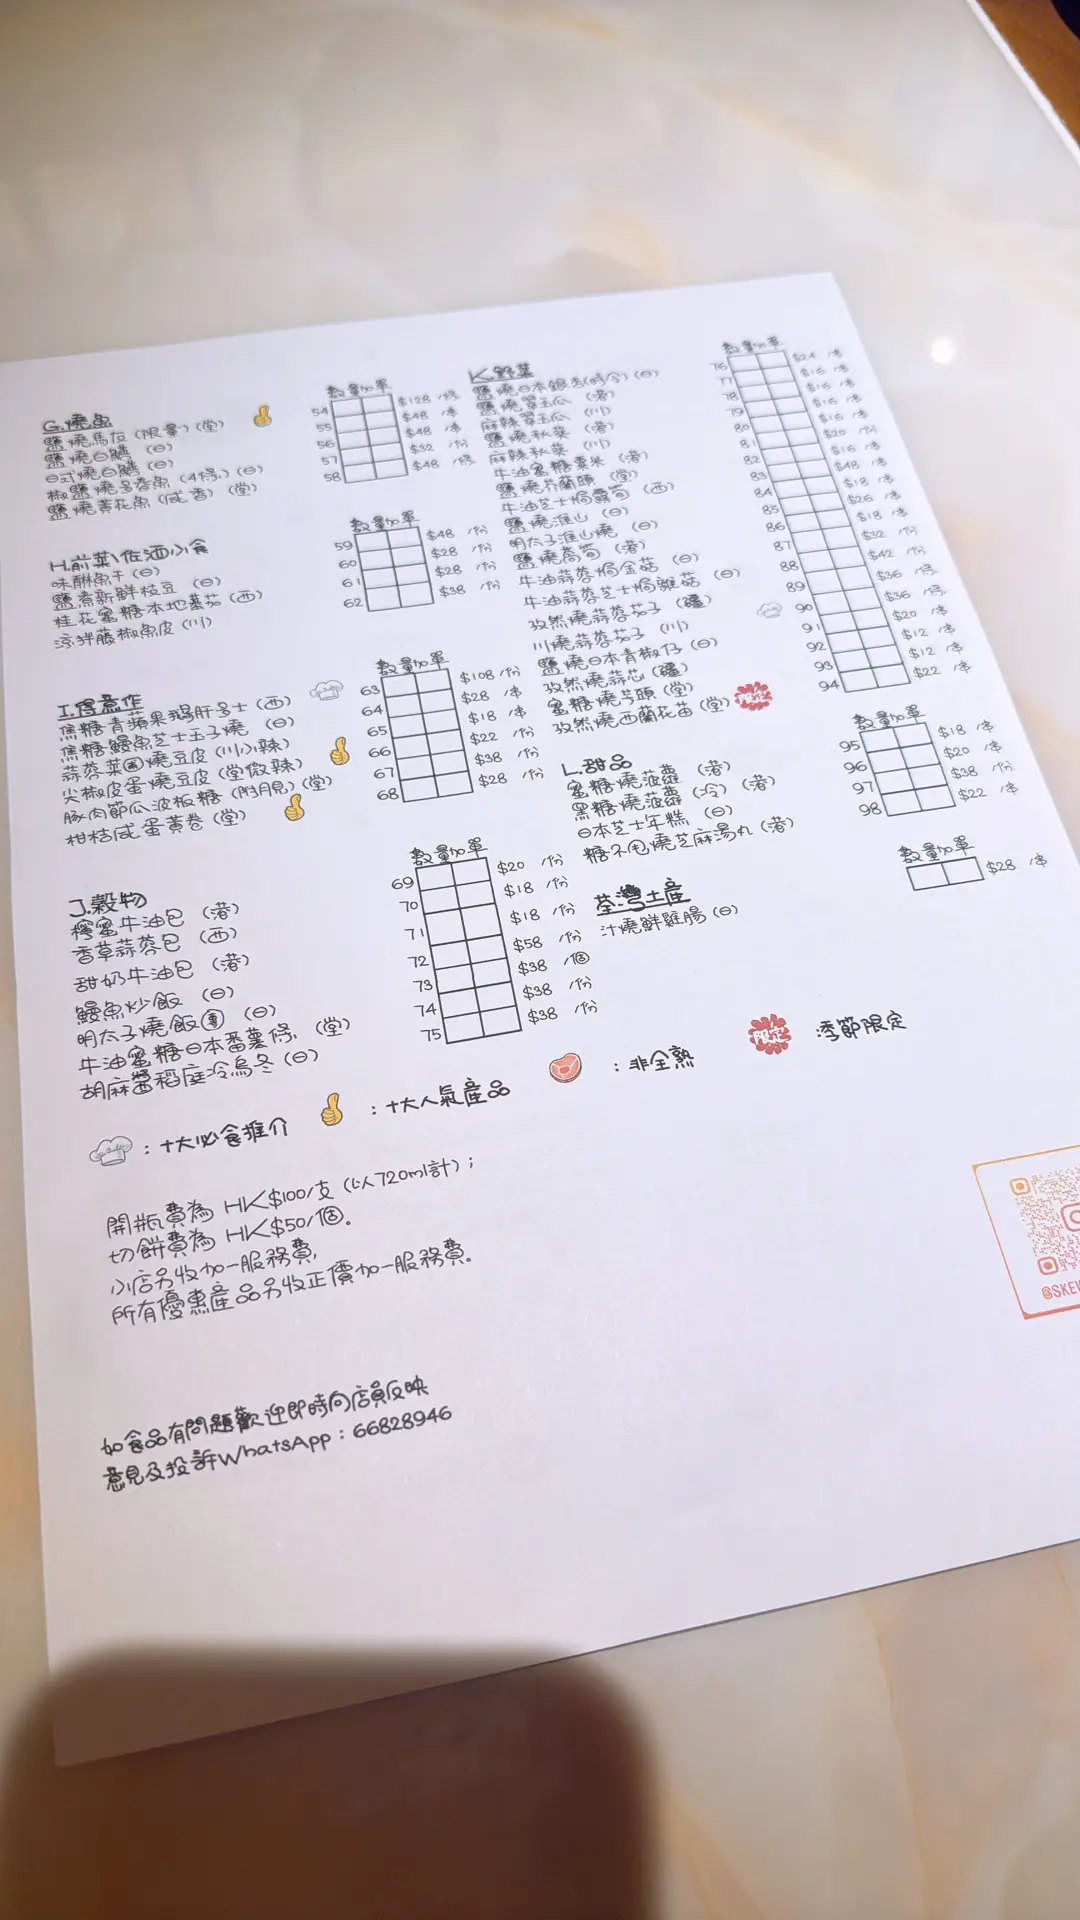 G.燒魚
數量加單
鹽燒馬友 (限量) (堂)
54 $128 /條
鹽燒白鱔 (日)
55 $48 /串
日式燒白鱔 (日)
56 $48 /串
椒鹽燒多春魚 (4條) (日)
57 $32 /份
鹽燒黃花魚 (咸香) (堂)
58 $48 /條
H.前菜\佐酒小食
數量加單
味醂魚干 (日)
59 $48 /份
鹽煮新鮮枝豆 (日)
60 $28 /份
桂花蜜糖本地蕃茄 (西)
61 $28 /份
涼拌藤椒魚皮 (川)
62 $38 /份
I.得意作
數量加單
焦糖青蘋果鵝肝多士 (西)
63 $108 /份
焦糖鰻魚芝士玉子燒 (日)
64 $28 /串
蒜蓉菜圃燒豆皮 (川小辣)
65 $18 /串
尖椒皮蛋燒豆皮 (堂微辣)
66 $22 /份
豚肉節瓜波板糖 (附月見) (堂)
67 $38 /份
柑桔咸蛋黃卷 (堂)
68 $28 /份
J.穀物
數量加單
檸蜜牛油包 (港)
69 $20 /份
香草蒜蓉包 (西)
70 $18 /份
甜奶牛油包 (港)
71 $18 /份
鰻魚炒飯 (日)
72 $58 /份
明太子燒飯團 (日)
73 $38 /個
牛油蜜糖日本番薯條 (堂)
74 $38 /份
胡麻醬稻庭冷烏冬 (日)
75 $38 /份
K.野菜
數量加單
鹽燒日本銀杏(時令) (日)
76 $24 /串
鹽燒翠玉瓜 (港)
77 $16 /串
麻辣翠玉瓜 (川)
78 $16 /串
鹽燒秋葵 (港)
79 $16 /串
麻辣秋葵 (川)
80 $16 /串
牛油蜜糖粟米 (港)
81 $20 /份
鹽燒芥蘭頭 (堂)
82 $16 /串
牛油芝士焗露筍 (西)
83 $48 /串
鹽燒淮山 (日)
84 $18 /串
明太子淮山燒 (日)
85 $26 /串
鹽燒萵筍 (港)
86 $18 /串
牛油蒜蓉焗金菇 (日)
87 $32 /份
牛油蒜蓉芝士焗雜菇 (日)
88 $42 /份
孜然燒蒜蓉茄子 (疆)
89 $36 /條
川燒蒜蓉茄子 (川)
90 $36 /條
鹽燒日本青椒仔 (日)
91 $20 /串
孜然燒蒜芯 (疆)
92 $12 /串
蜜糖燒芋頭 (堂)
93 $12 /串
孜然燒西蘭花苗 (堂) 限定
94 $22 /串
L.甜品
數量加單
蜜糖燒菠蘿 (港)
95 $18 /串
黑糖燒菠蘿 (冷) (港)
96 $20 /串
日本芝士年糕 (日)
97 $38 /份
糖不甩燒芝麻湯丸 (港)
98 $22 /串
荃灣土產
數量加單
汁燒鮮雞腸 (日)
$28 /串
：十大必食推介
：十大人氣產品
：非全熟
限定 :季節限定
開瓶費為 HK$100/支 (以720ml計)；
切餅費為 HK$50/個。
小店另收加一服務費,
所有優惠產品另收正價加一服務費。
如食品有問題歡迎即時向店員反映
意見及投訴WhatsApp：66828946